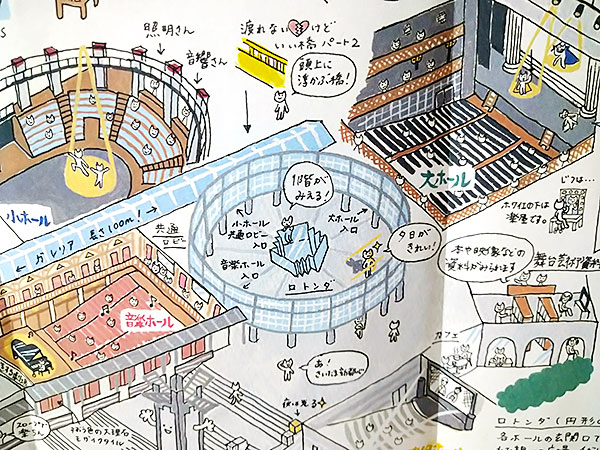 照明さん
音響さん
渡れない💔けど
いい橋 パート2
頭上に
浮かぶ橋!
小ホール
大ホール
←ガレリア 長さ100m!→
共通
ロビー
1階が
みえる!
小ホール
共通ロビー
入口
大ホール
入口
音楽ホール
入口
ロトンダ
夕日が
きれい!
音楽ホール
じつは…
ホワイエの下は
楽屋です。
本や映像などの
資料がみられます
舞台芸術資料
カフェ
あ!
さいたま新都心
夜は光る
ロトンダ(円形の
各ホールの玄関口で